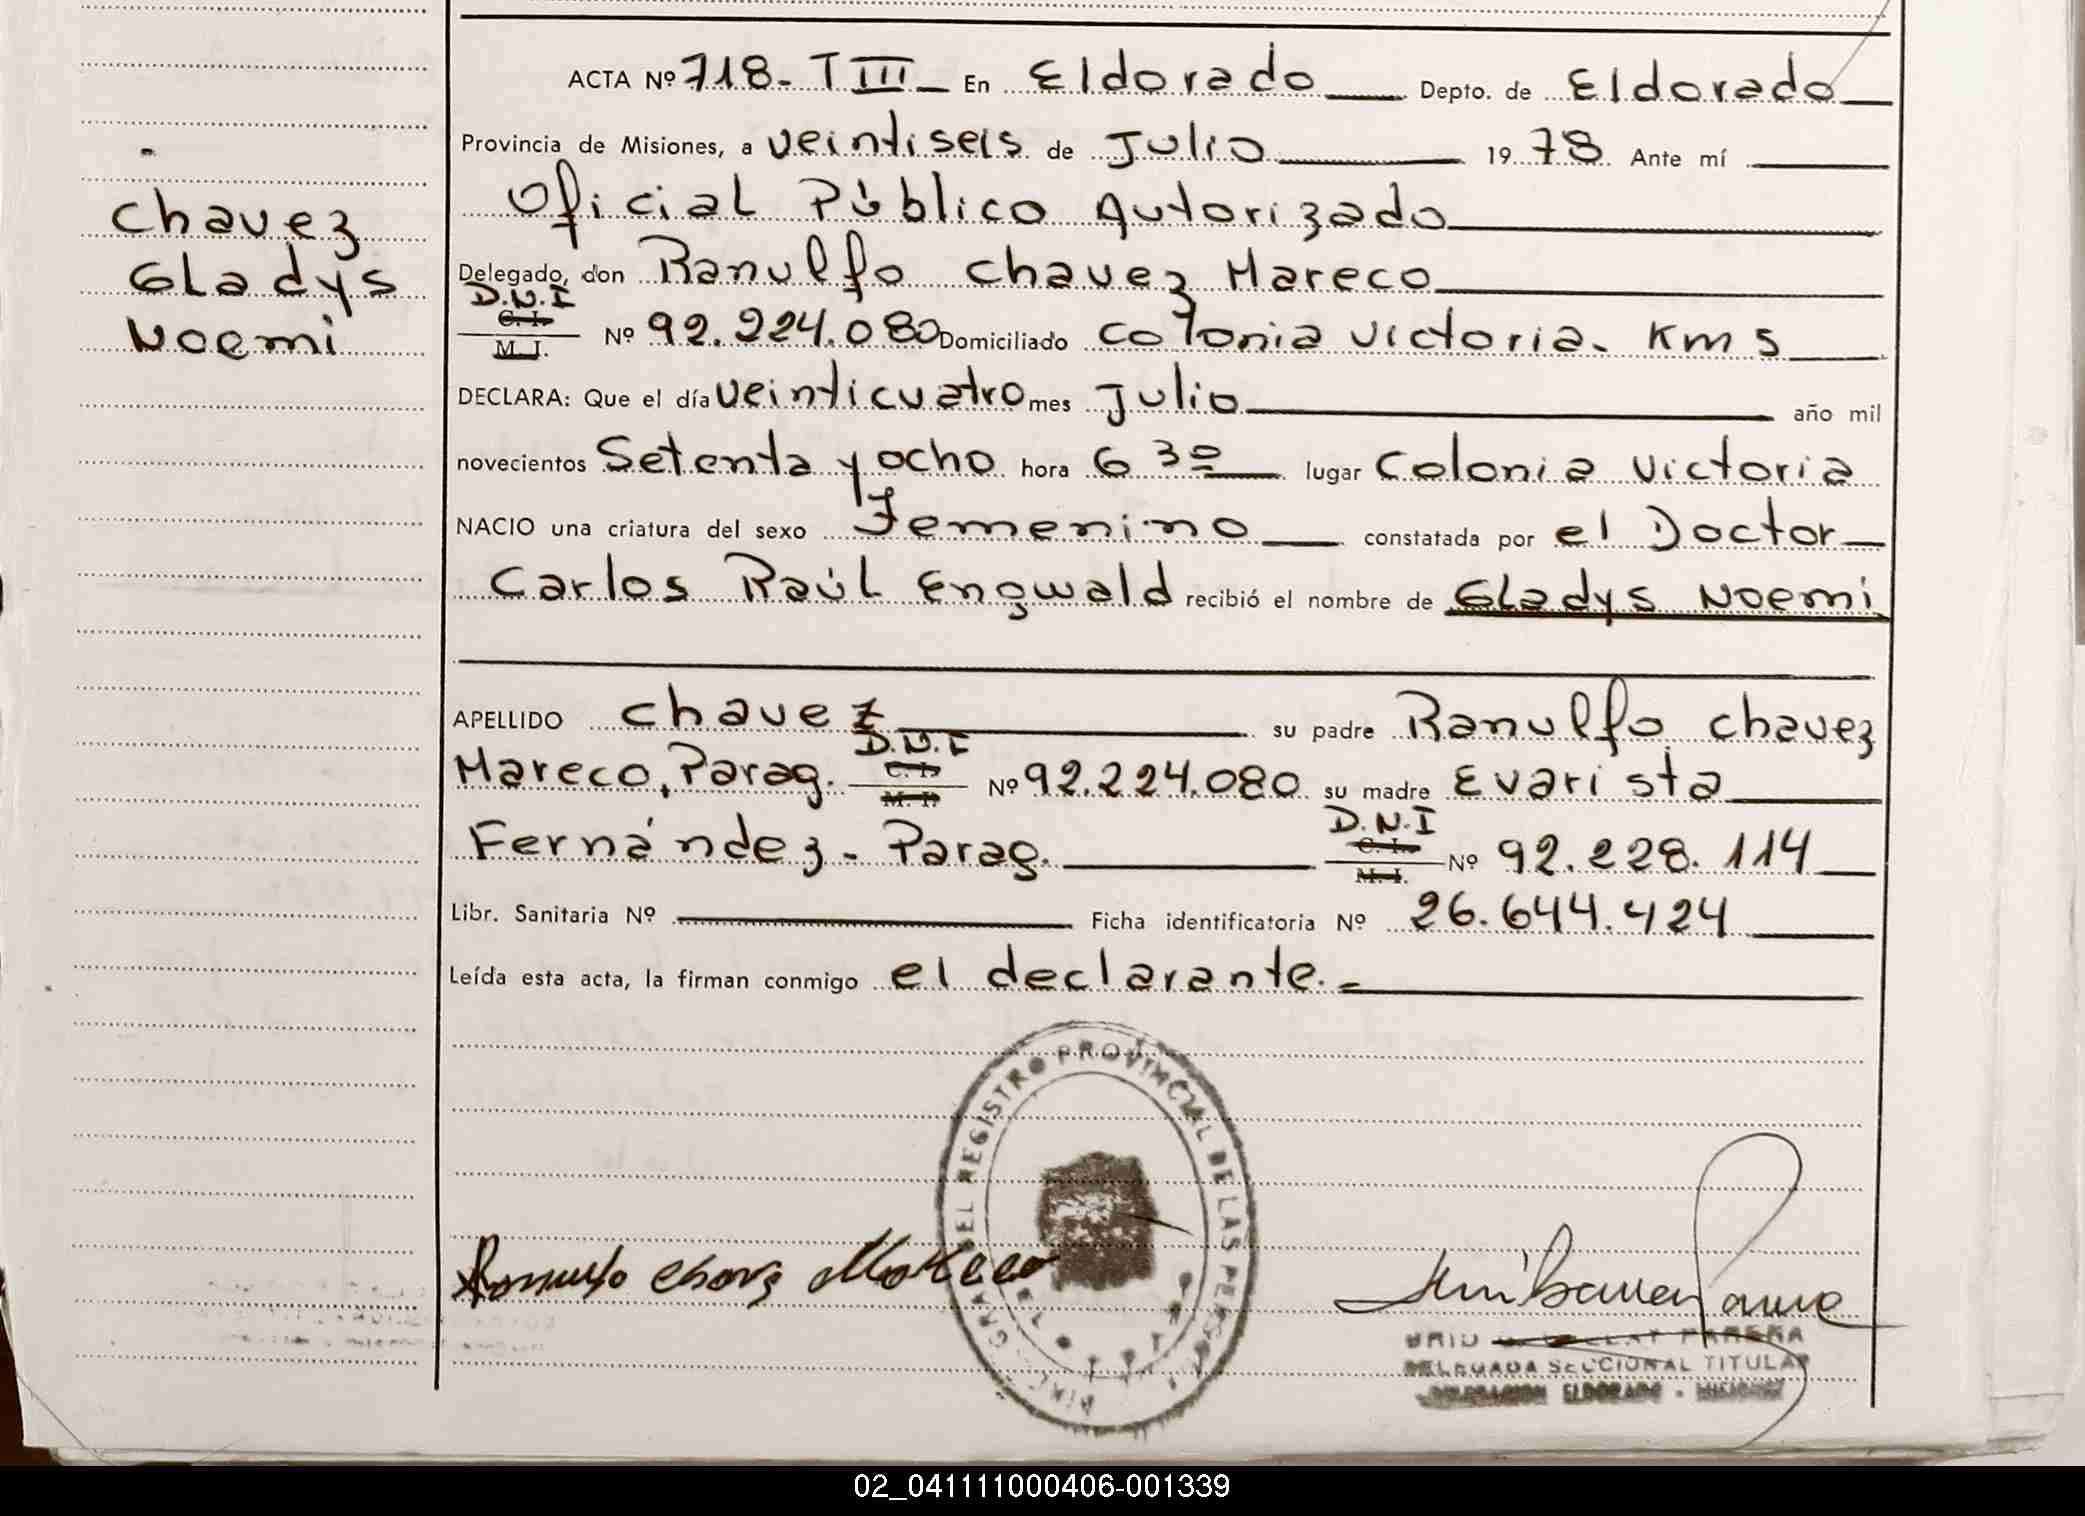 ACTA Nº 718 - T III En Eldorado Depto. de Eldorado
Provincia de Misiones, a veintiseis de Julio 1978 Ante mí
Oficial Público Autorizado
Delegado, don Ranulfo Chavez Mareco
D.N.I
C. I.
M. I. Nº 92.224.080 Domiciliado Colonia Victoria. Km 5
DECLARA: Que el día veinticuatro mes Julio año mil
novecientos Setenta y ocho hora 6 30 lugar Colonia Victoria
NACIO una criatura del sexo Femenino constatada por el Doctor
Carlos Raúl Engwald recibió el nombre de Gladys Noemi
APELLIDO Chavez su padre Ranulfo Chavez
D.N.I
C. I.
M. I.
Mareco, Parag. Nº 92.224.080 su madre Evarista
D.N.I
C. I.
M. I.
Fernández - Parag. Nº 92.228.114
Libr. Sanitaria Nº Ficha identificatoria Nº 26.644.424
Leída esta acta, la firman conmigo el declarante. -
Chavez
Gladys
Noemi
GRAL. DEL REGISTRO PROVINCIAL DE LAS PERSO
DELEGADA SECCIONAL TITULAR
DELEGACION ELDORADO - MISIONES
02_041111000406-001339